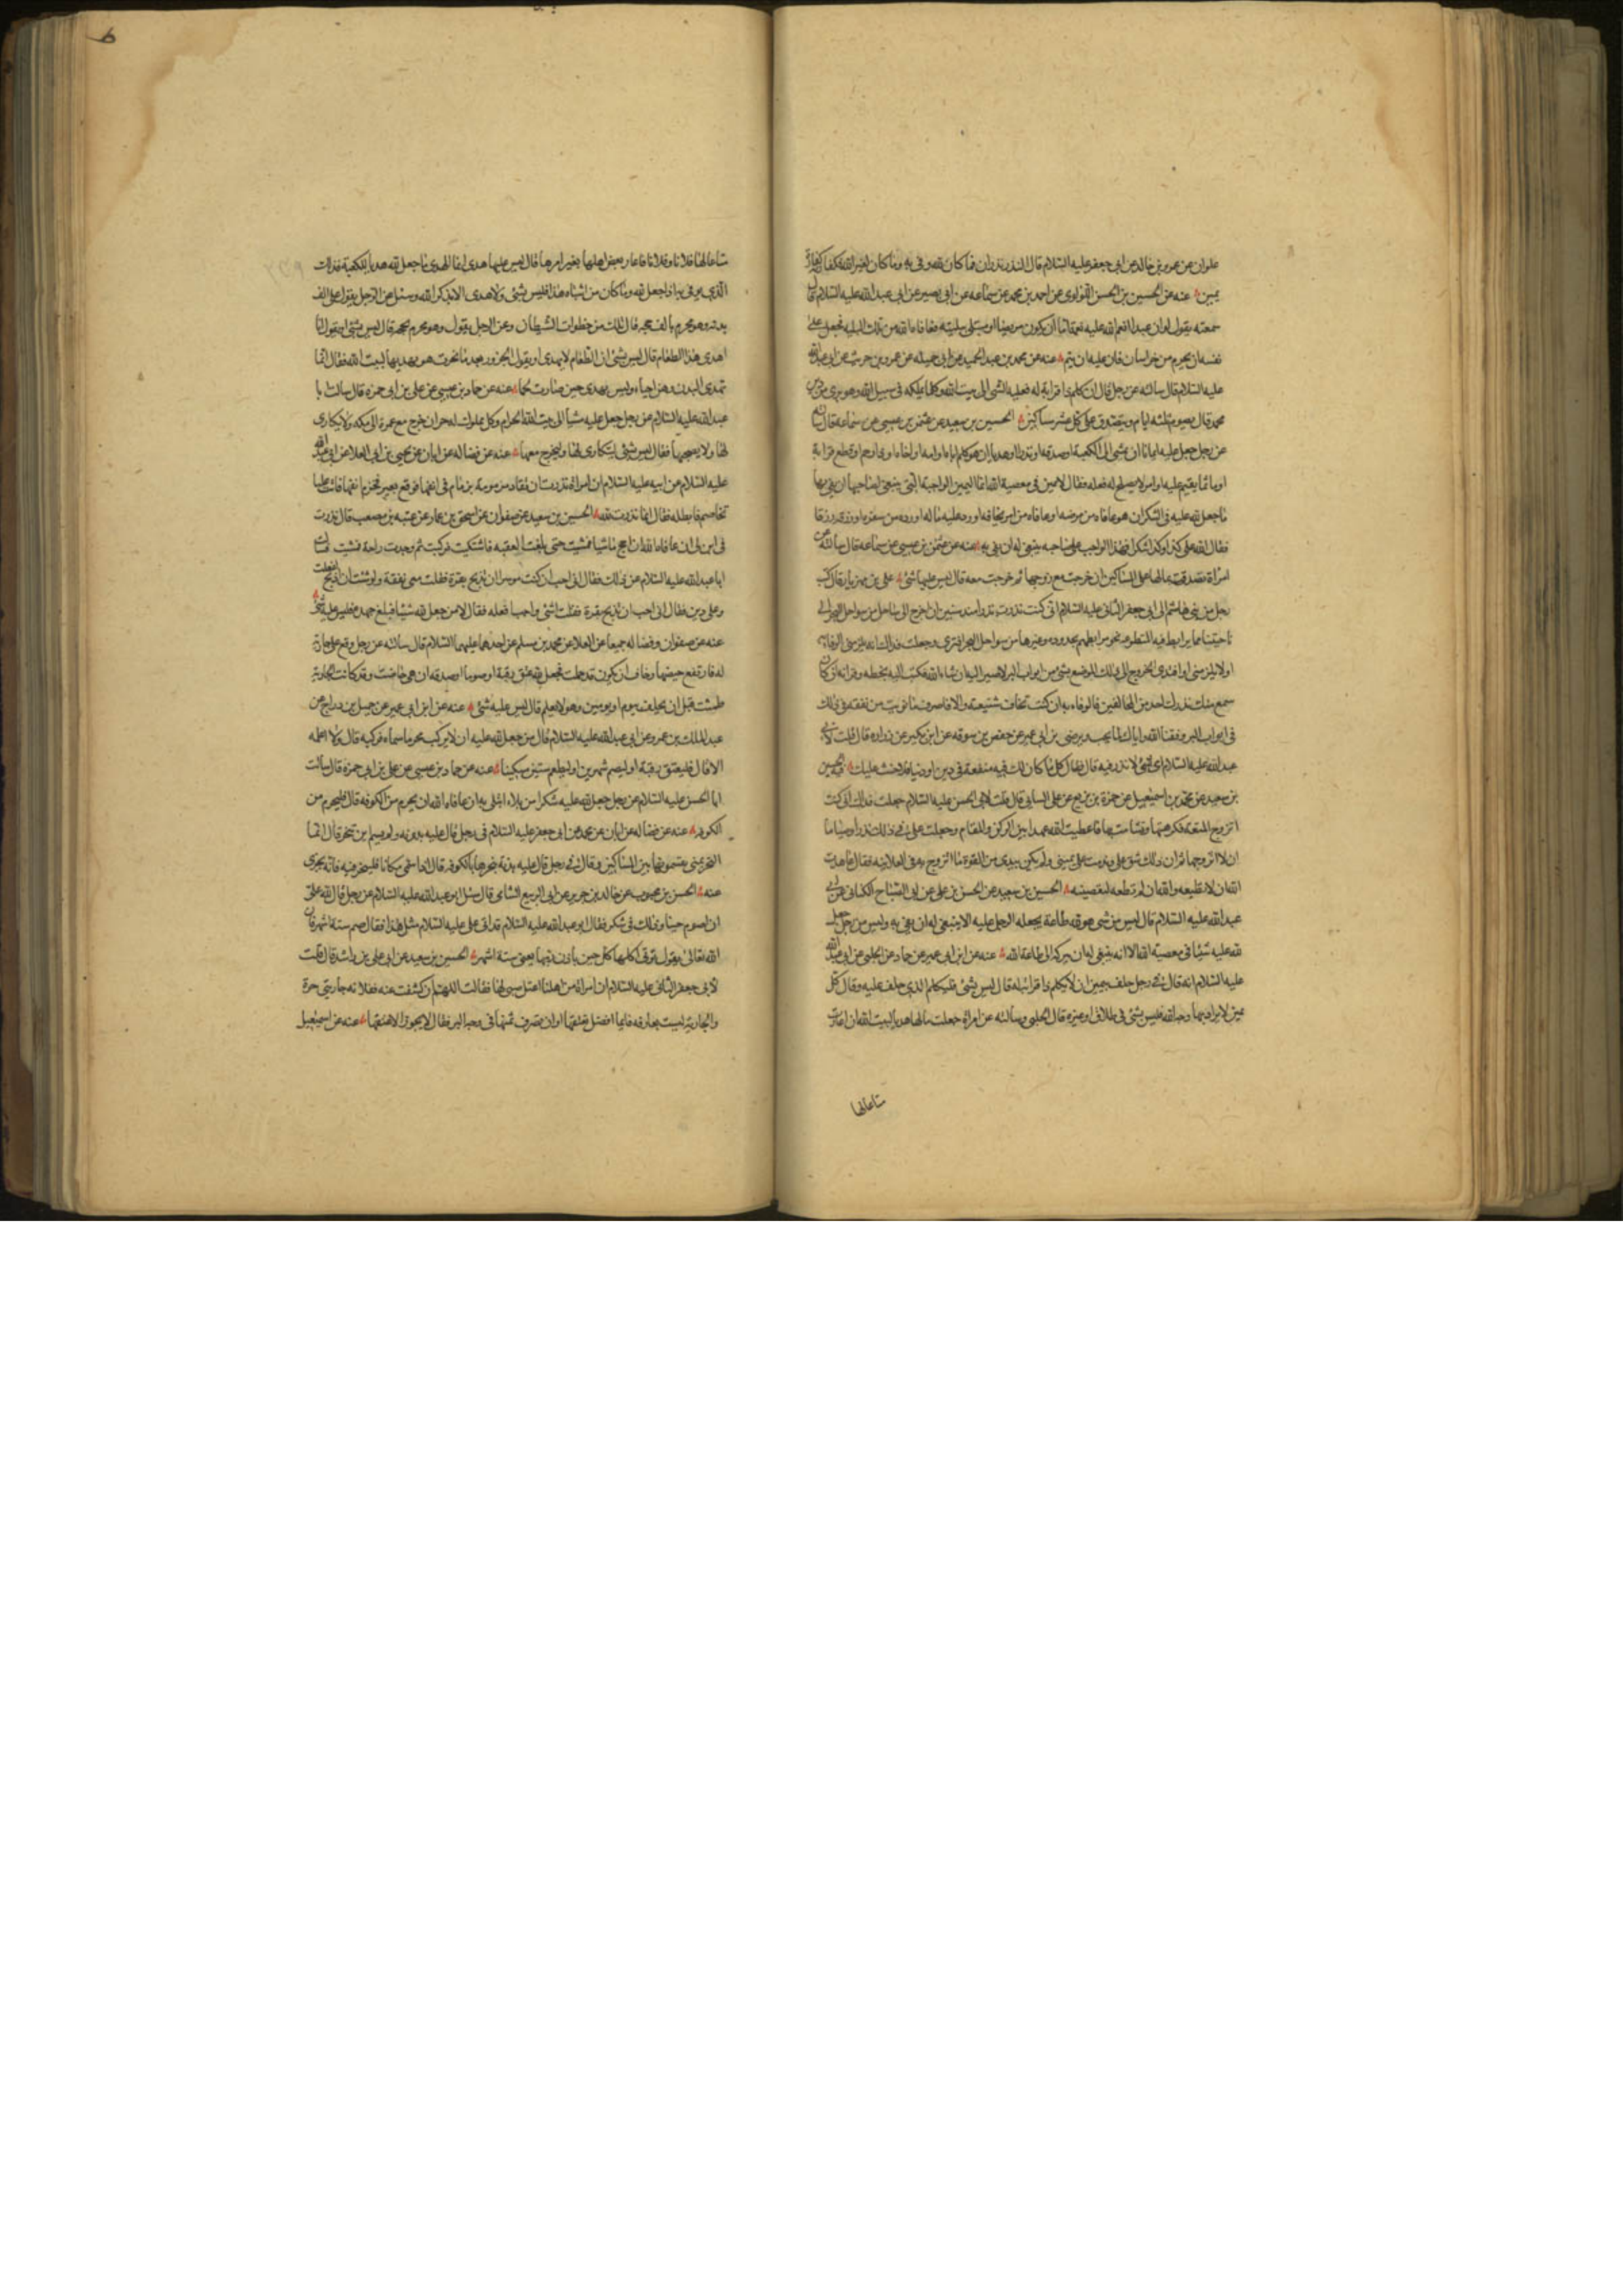 علوان عن عمرو بن خالد عن ابي جعفر عليه السلام قال النذر نذران فما كان لله وفى به وما كان لغير الله فكفارته كفارة
يمين عنه عن الحسين بن الحسن اللؤلؤى عن احمد بن محمد عن سماعه عن ابى بصير عن ابى عبد الله عليه السلام قال
سمعته يقول لو ان عبدا انعم الله عليه نعمة اما ان يكون مريضا او مبتلى ببلية فعافاه الله من تلك البلية فجعل على
نفسه ان يحرم من خراسان فان عليه ان يتم عنه عن محمد بن عبد الحميد عن ابى جميله عن عمرو بن حريث عن ابى عبد الله
عليه السلام قال سالته عن رجل قال ان كلم ذا قرابة له فعليه المشى الى بيت الله وكلما يملكه فى سبيل الله وهو برى من دين
محمد قال يصوم ثلثه ايام ويتصدق على عشر مساكين الحسين بن سعيد عن عثمن بن عيسى عن سماعه قال سالته
عن رجل جعل عليه ايمانا ان يمشى الى الكعبة او صدقه او نذرا او هديا ان هو كلم اباه او امه او اخاه او ذا رحم او قطع قرابة
او ماثما يقيم عليه او امر لا يصلح له فعله فقال لا يمين فى معصية الله انما اليمين الواجبة التى ينبغى لصاحبها ان يفى بها
ما جعل لله عليه فى الشكر ان هو عافاه من مرضه او عافاه من امر يخافه او رد عليه ماله او رده من سفره او رزقه رزقا
فقال لله على كذا وكذا شكرا فهذا الواجب على صاحبه ينبغى له ان يفى به عنه عن عثمن بن عيسى عن سماعه قال سالته عن
امراة تصدقت بمالها على المساكين ان خرجت مع زوجها ثم خرجت معه قال ليس عليها شئ على بن مهزيار قال كتب
رجل من بنى هاشم الى ابى جعفر الثانى عليه السلام انى كنت نذرت نذرا منذ سنين ان اخرج الى ساحل من سواحل البحر الى
ناحيتنا مما يرابط فيه المتطوعه نحو مرابطهم بجده وغيرها من سواحل البحر افترى جعلت فداك انه يلزمنى الوفاء به
او لا يلزمنى او افتدى الخروج الى ذلك الموضع بشئ من ابواب البر لاصير اليه ان شاء الله فكتب اليه بخطه وقراته ان كان
سمع منك نذرك احد من المخالفين فالوفاء به ان كنت تخاف شنيعته والا فاصرف ما نويت من نفقة فى ذلك
فى ابواب البر وفقنا الله واياك لما يحب ويرضى بن ابى عمير عن جعفر بن سوقه عن ابن بكير عن زراره قال قلت لابى
عبد الله عليه السلام اى شئ لا نذر فيه قال فقال كل ما كان لك فيه منفعة فى دين او دنيا فلا حنث عليك فيه الحسين
بن سعيد عن محمد بن اسمعيل عن حمزة بن بزيع عن على السائى قال قلت لابى الحسن عليه السلام جعلت فداك انى كنت
اتزوج المتعة فكرهتها وتشامت بها فاعطيت الله عهدا بين الركن والمقام وجعلت على فى ذلك نذرا وصياما
ان لا اتزوجها ثم ان ذلك شق على وندمت على يمينى ولم يكن بيدى من القوة ما اتزوج به فى العلانيه فقال عاهدت
الله ان لا تطيعه والله لئن لم تطعه لتعصينه الحسين بن سعيد عن الحسن بن على عن ابى الصباح الكنانى عن ابى
عبد الله عليه السلام قال ليس من شى هو لله طاعة يجعله الرجل عليه الا ينبغى له ان يفى به وليس من رجل جعل
لله عليه شيئا فى معصية الله الا انه ينبغى له ان يتركه الى طاعة الله عنه عن ابن ابى عمير عن حماد عن الحلبى عن ابى عبد الله
عليه السلام انه قال فى رجل حلف بيمين ان لا يكلم ذا قرابة له قال ليس بشئ فليكلم الذى حلف عليه وقال كل
يمين لا يراد بها وجه الله فليس بشئ فى طلاق او غيره قال الحلبى وسالته عن امراة جعلت مالها هديا لبيت الله ان اعارت
متاعا لها
متاعا لها فلانا وفلانا فاعار بعض اهلها بغير امرها قال ليس عليها هدى انما الهدى ما جعل لله هديا للكعبة فذلك
الذى يوفى به اذا جعل لله وما كان من اشباه هذا فليس بشئ ولا هدى الا بذكر الله وسئل عن الرجل يقول على الف
بدنه وهو محرم بالف حجه قال تلك من خطوات الشيطان وعن الرجل يقول وهو محرم بحجه قال ليس بشئ او يقول انا
اهدى هذا الطعام قال ليس بشئ ان الطعام لا يهدى او يقول الجزور بعد ما نحرت هو يهديها لبيت الله فقال انما
تهدى البدن وهن احياء وليس يهدى حين صارت لحما عنه عن حماد بن عيسى عن على بن ابى حمزه قال سالت ابا
عبد الله عليه السلام عن رجل جعل عليه مشيا الى بيت الله الحرام وكل مملوك له حر ان خرج مع عمته الى مكه ولا يكارى
لها ولا يصحبها فقال ليس بشئ ليتكارى لها وليخرج معها عنه عن فضاله عن ابان عن يحيى بن ابى العلا عن ابى عبد الله
عليه السلام عن ابيه عليه السلام ان امراة نذرت ان تقاد مزمومة بزمام فى انفها فوقع بعير فخرم انفها فاتت عليا
تخاصم فابطله فقال انما نذرت لله الحسين بن سعيد عن صفوان عن اسحق بن عمار عن عنبسه بن مصعب قال نذرت
فى ابن لى ان عافاه الله ان احج ماشيا فمشيت حتى بلغت العقبه فاشتكيت فركبت ثم وجدت راحة فمشيت فسالت
ابا عبد الله عليه السلام عن ذلك فقال انى احب ان كنت موسرا ان تذبح بقرة فقلت معى نفقة ولو شئت ان اذبح لفعلت
وعلى دين فقال انى احب ان تذبح بقرة فقلت اشئ واجب افعله فقال لا من جعل لله شيئا فبلغ جهده فليس عليه شئ
عنه عن صفوان وفضاله جميعا عن العلا عن محمد بن مسلم عن احدهما عليهما السلام قال سالته عن رجل وقع على جارية
له فارتفع حيضها وخاف ان تكون قد حملت فجعل لله عتق رقبة او صوما او صدقه ان هى حاضت وقد كانت الجارية
طمثت قبل ان يحلف بيوم او يومين وهو لا يعلم قال ليس عليه شئ عنه عن ابن ابى عمير عن جميل بن دراج عن
عبد الملك بن عمرو عن ابى عبد الله عليه السلام قال من جعل لله عليه ان لا يركب محرما سماه فركبه قال ولا اعلمه
الا قال فليعتق رقبة او ليصم شهرين او ليطعم ستين مسكينا عنه عن حماد بن عيسى عن على بن ابى حمزه قال سالت
ابا الحسن عليه السلام عن رجل جعل لله عليه شكرا من بلاء ابتلى به ان عافاه الله ان يحرم من الكوفه قال فليحرم من
الكوفه عنه عن فضاله عن ابان عن محمد عن ابى جعفر عليه السلام فى رجل قال عليه بدنه ولم يسم اين تنحر قال انما
النحر بمنى يقسمونها بين المساكين وقال فى رجل قال عليه بدنة ينحرها بالكوفه قال اذا سمى مكانا فلينحر فيه فانه يجزى
عنه الحسن بن محبوب عن خالد بن جرير عن ابى الربيع الشامى قال سئل ابو عبد الله عليه السلام عن رجل قال لله على
ان اصوم حينا وذلك فى شكر فقال ابو عبد الله عليه السلام قد اتى على عليه السلام مثل هذا فقال صم ستة اشهر فان
الله تعالى يقول تؤتى اكلها كل حين باذن ربها يعنى ستة اشهر الحسين بن سعيد عن ابى على بن راشد قال قلت
لابى جعفر الثانى عليه السلام ان امراة من اهلنا اعتل صبى لها فقالت اللهم ان كشفت عنه ففلانه جاريتى حرة
والجارية ليست بعارفه فايما افضل تعتقها او ان تصرف ثمنها فى وجه البر فقال لا يجوز الا عتقها عنه عن اسمعيل